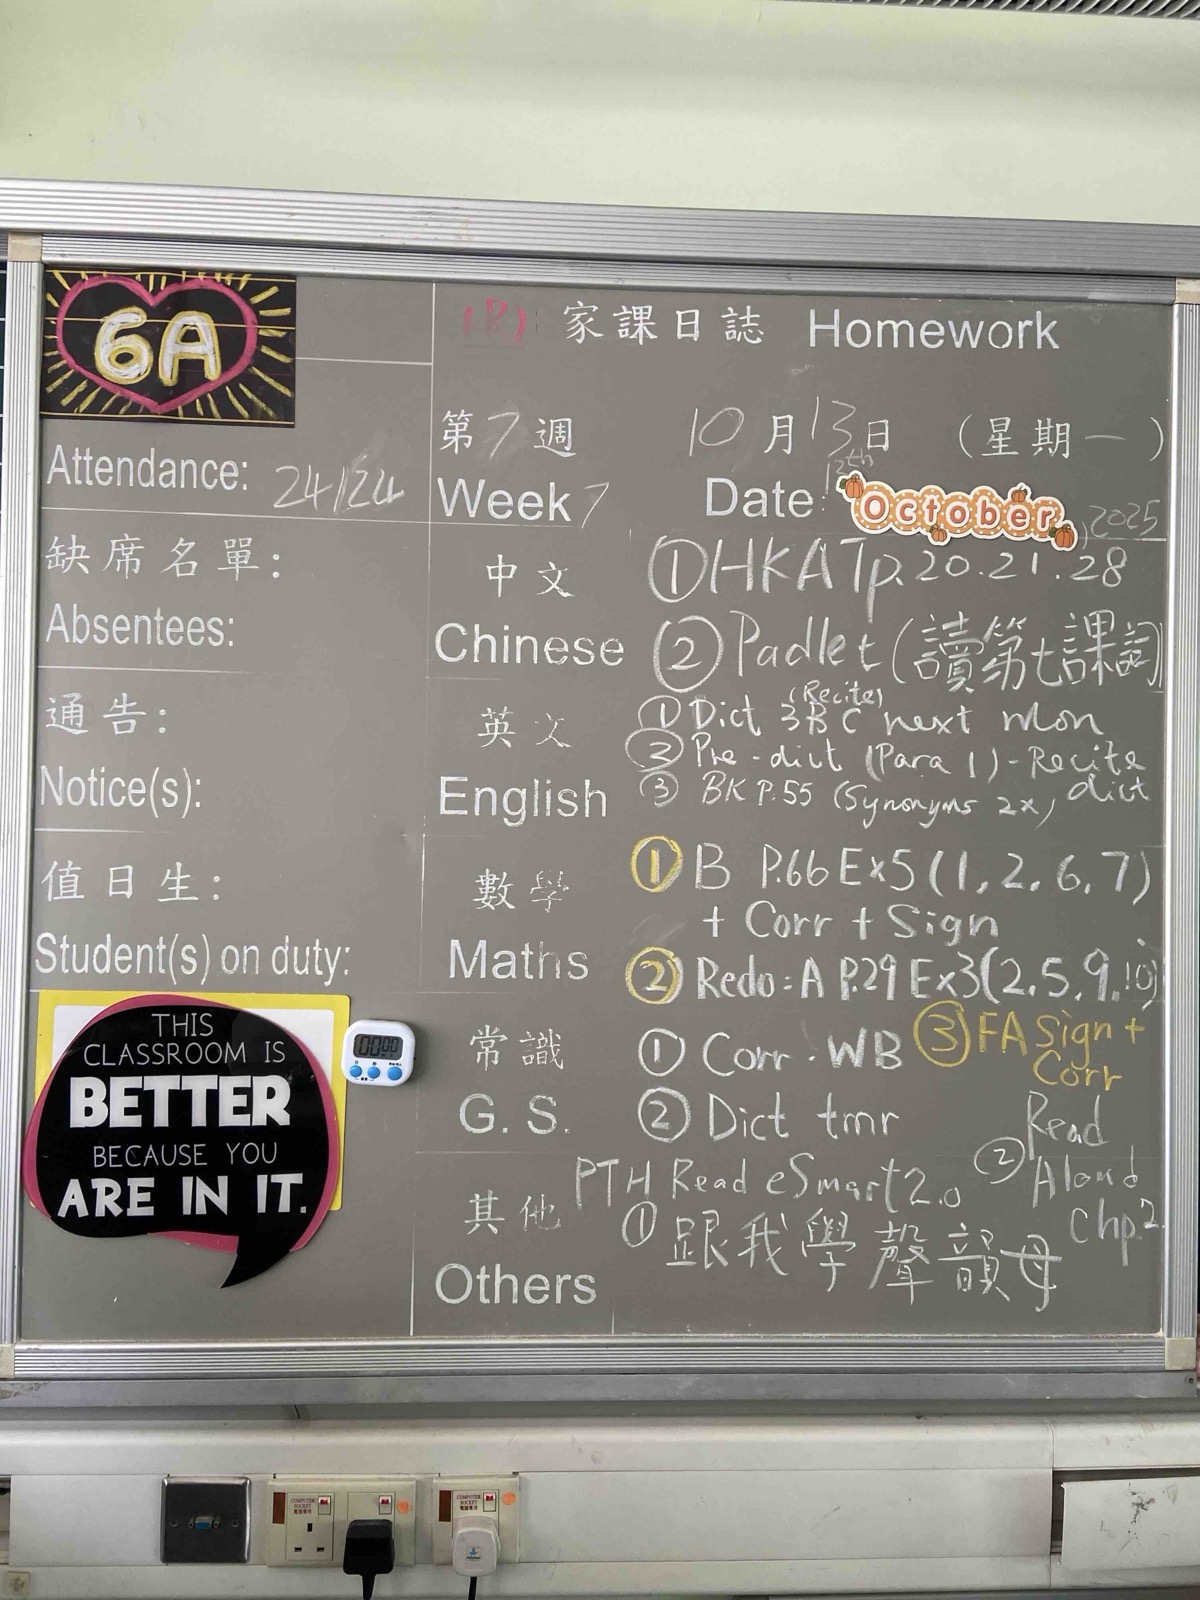 6A
(R) 家課日誌 Homework
第7週 10月13日 (星期一)
Attendance: 24/24
Week 7 Date October, 2025
缺席名單:
Absentees:
通告:
Notice(s):
值日生:
Student(s) on duty:
THIS
CLASSROOM IS
BETTER
BECAUSE YOU
ARE IN IT.
中文
Chinese
①HKAT p.20.21.28
②Padlet (讀第七課詞
英文
English
(Recite)
①Dict 3B C next Mon
② Pre-dict (Para 1) - Recite
dict
③ BK P.55 (Synonyms 2x,
數學
Maths
① B P.66 Ex5 (1, 2, 6, 7)
+ Corr + Sign
② Redo: A P.29 Ex3(2.5.9.10)
③FA Sign +
Corr
常識
G. S.
① Corr. WB
② Dict tmr
其他
Others
PTH Read eSmart 2.0
① 跟我學聲韻母
② Read
Aloud
Chp.2
COMPUTER
SOCKET
電腦專用
COMPUTER
SOCKET
電腦專用